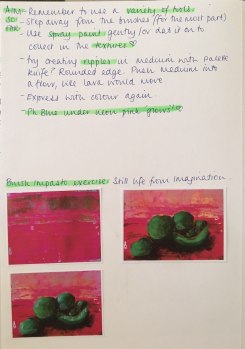 AIM - Remember to use a variety of tools
- Step away from the brushes (for the most part)
- Use spray paint gently or das it on to
collect in the textures
- Try creating ripples in medium with palette
knife? Rounded edge. Push medium into
a flow, like lava would move
- Express with colour again
- Ph Blue under neon pink glows!
Brush impasto exercise. Still life from imagination